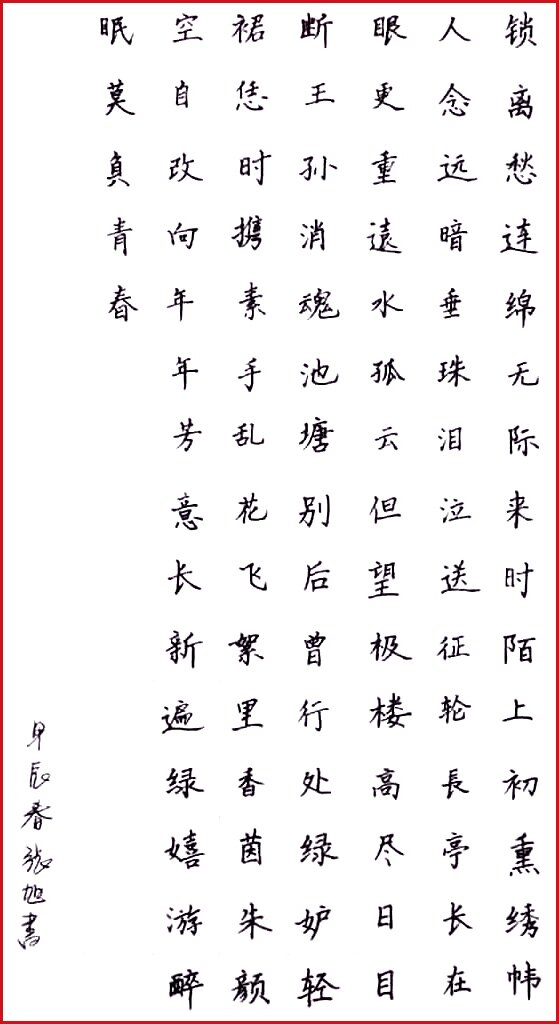 锁离愁连绵无际来时陌上初熏绣帏
人念远暗垂珠泪泣送征轮長亭长在
眼更重遠水孤云但望极楼高尽日目
断王孙消魂池塘别后曾行处绿妒轻
裙恁时携素手乱花飞絮里香茵朱颜
空自改向年年芳意长新遍绿嬉游醉
眠莫負青春
甲辰春張旭書